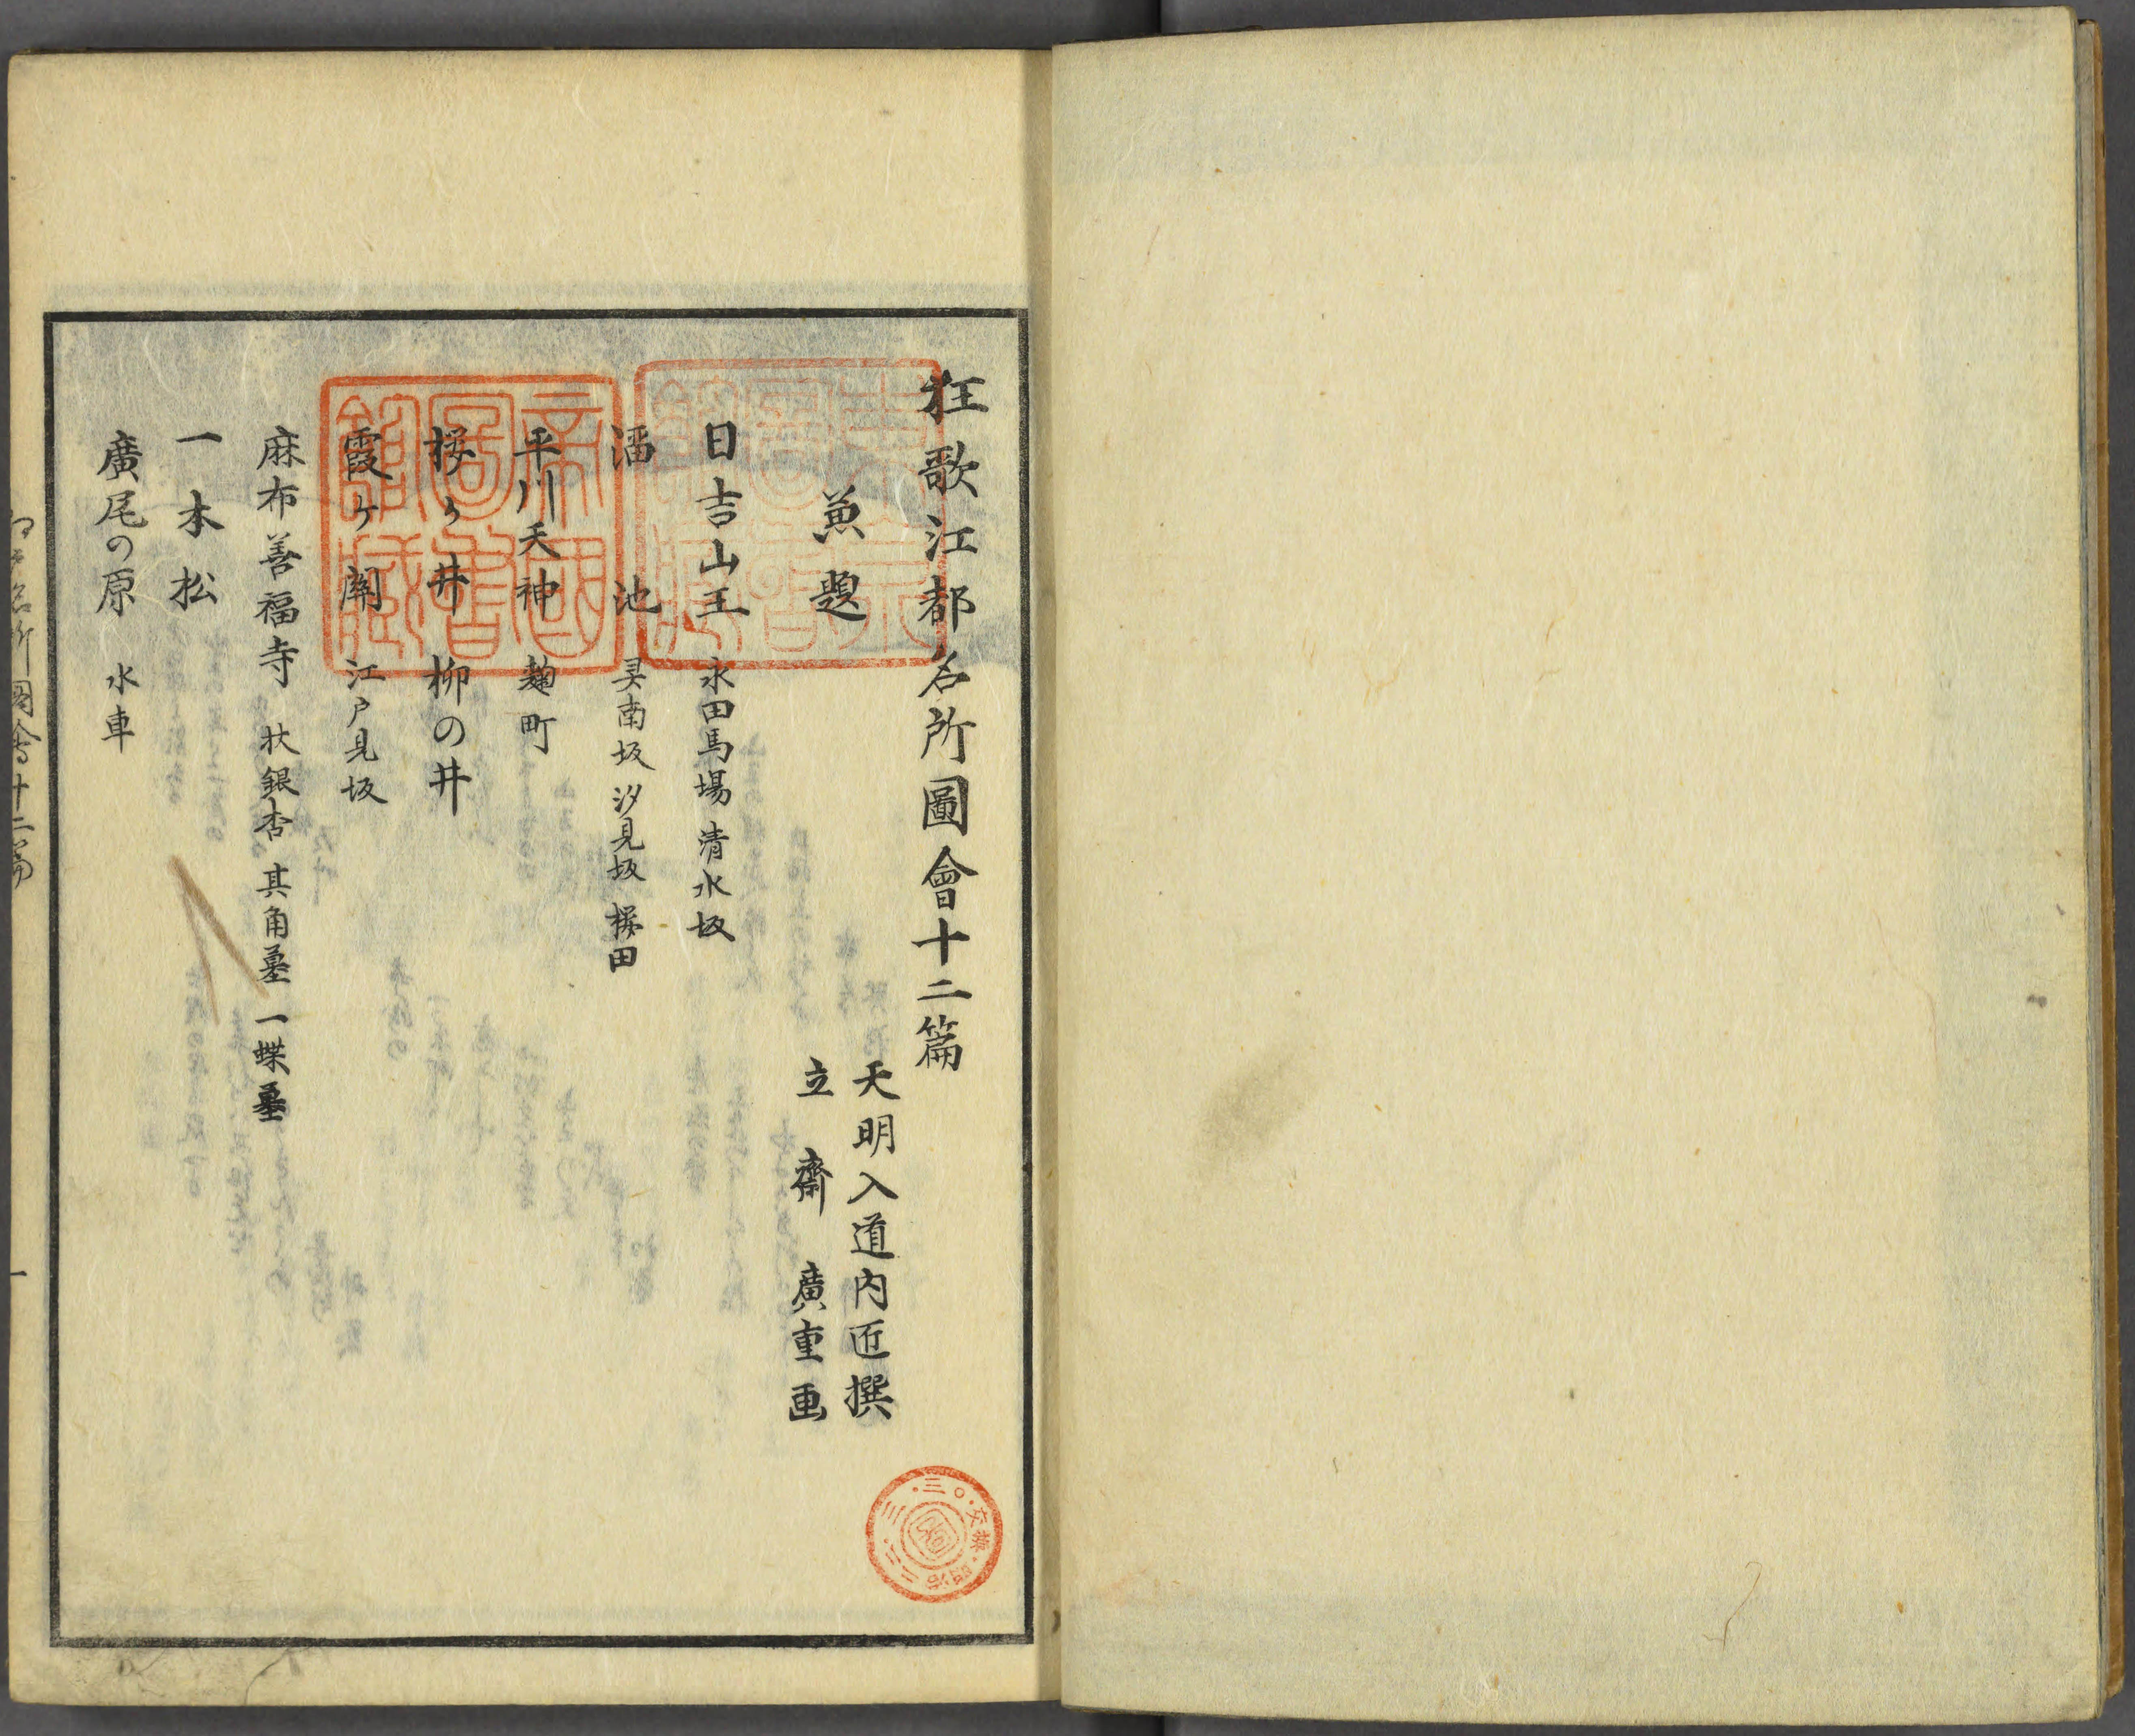 狂歌江都名所圖會十二篇
天明入道内匠撰
立齋廣重画
兼題
日吉山王 永田馬場 清水坂
溜池 灵南坂 汐見坂 桜田
平川天神 麹町
桜ヶ井 柳の井
霞ヶ関 江戸見坂
麻布善福寺 杖銀杏 其角墓 一蝶墓
一本松
廣尾の原 水車
帝國圖書館藏
江戸名所圖會十二篇 一